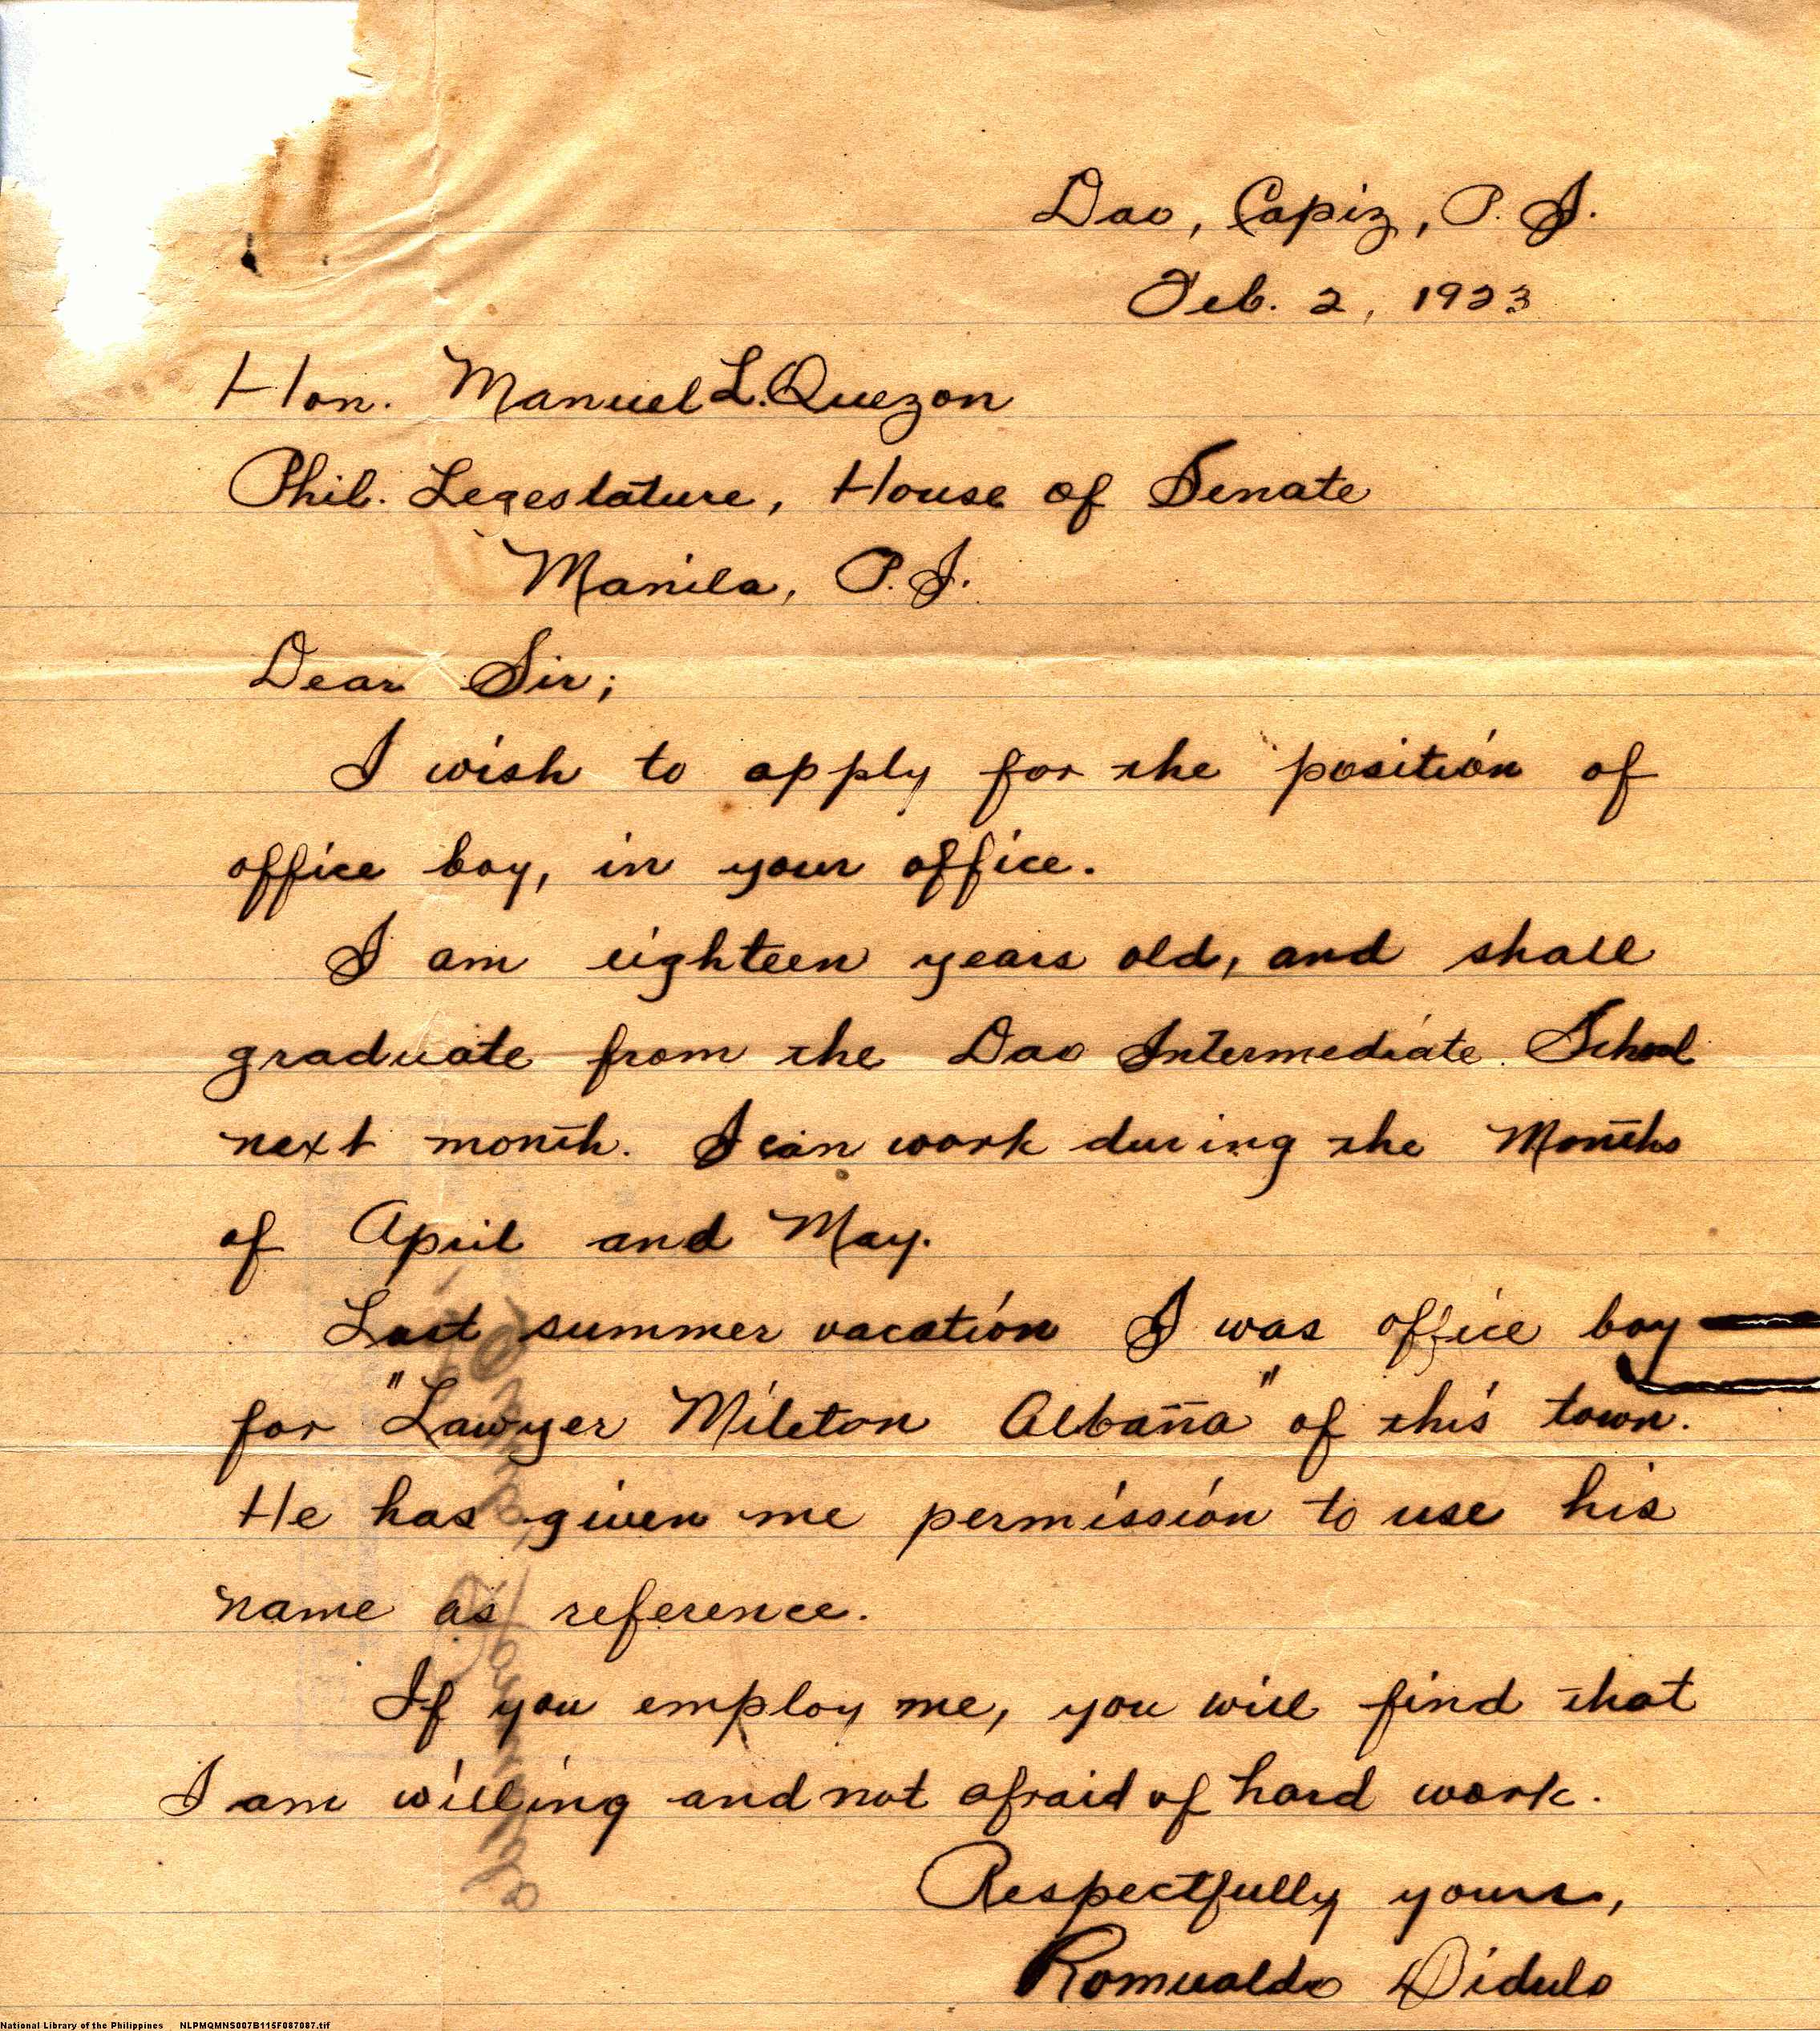 Dao, Capiz, P. I.
Feb. 2, 1923
Hon. Manuel L. Quezon
Phil. Legeslature, House of Senate
Manila, P. I.
Dear Sir;
I wish to apply for the position of
office boy, in your office.
I am eighteen years old, and shall
graduate from the Dao Intermediate School
next month. I can work during the Months
of April and May.
Last summer vacation I was office boy
for "Lawyer Mileton Albaña" of this town.
He has given me permission to use his
name as reference.
If you employ me, you will find that
I am willing and not afraid of hard work.
Respectfully yours,
Romualdo Didulo
National Library of the Philippines NLPMQMNS007B115F087087.tif